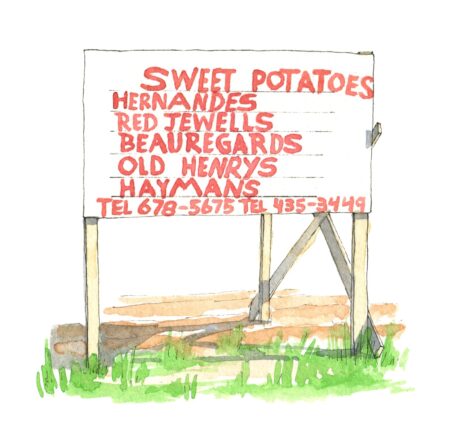 SWEET POTATOES
HERNANDES
RED JEWELLS
BEAUREGARDS
OLD HENRYS
HAYMANS
TEL 678-5675 TEL 435-3449